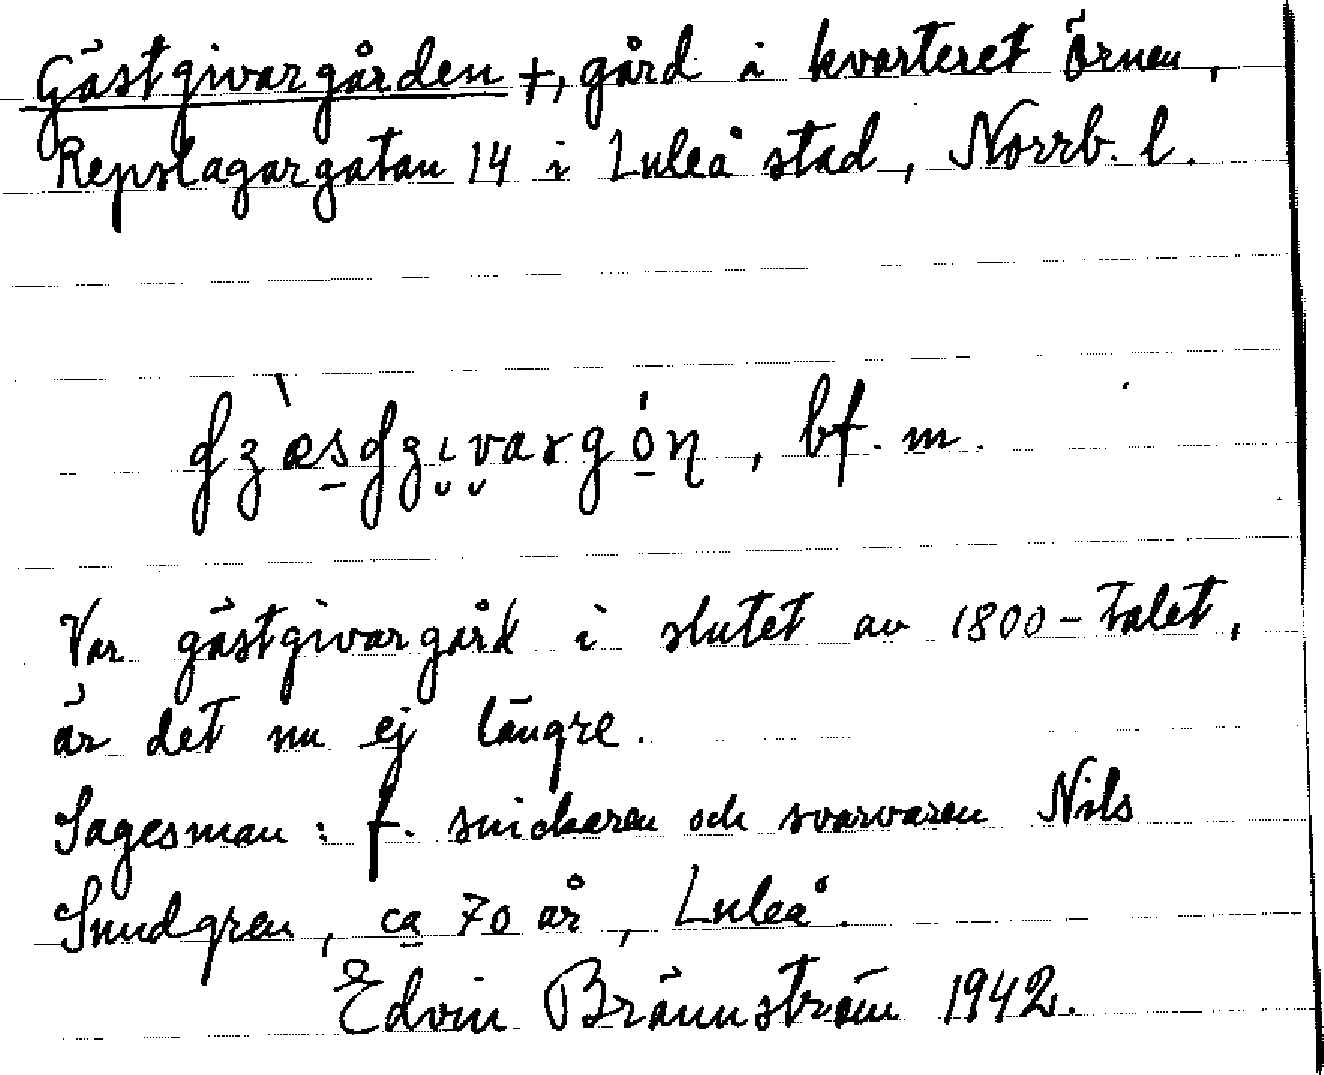 Gästgivargården +, gård i kvarteret Örnen,
Repslagargatan 14 i Luleå stad, Norrb. l.
bf. m.
Var gästgivargård i slutet av 1800-talet,
är det nu ej längre.
Sagesman: f. snickaren och svarvaren Nils
Sundgren, ca 70 år, Luleå.
Edvin Brännström 1942.